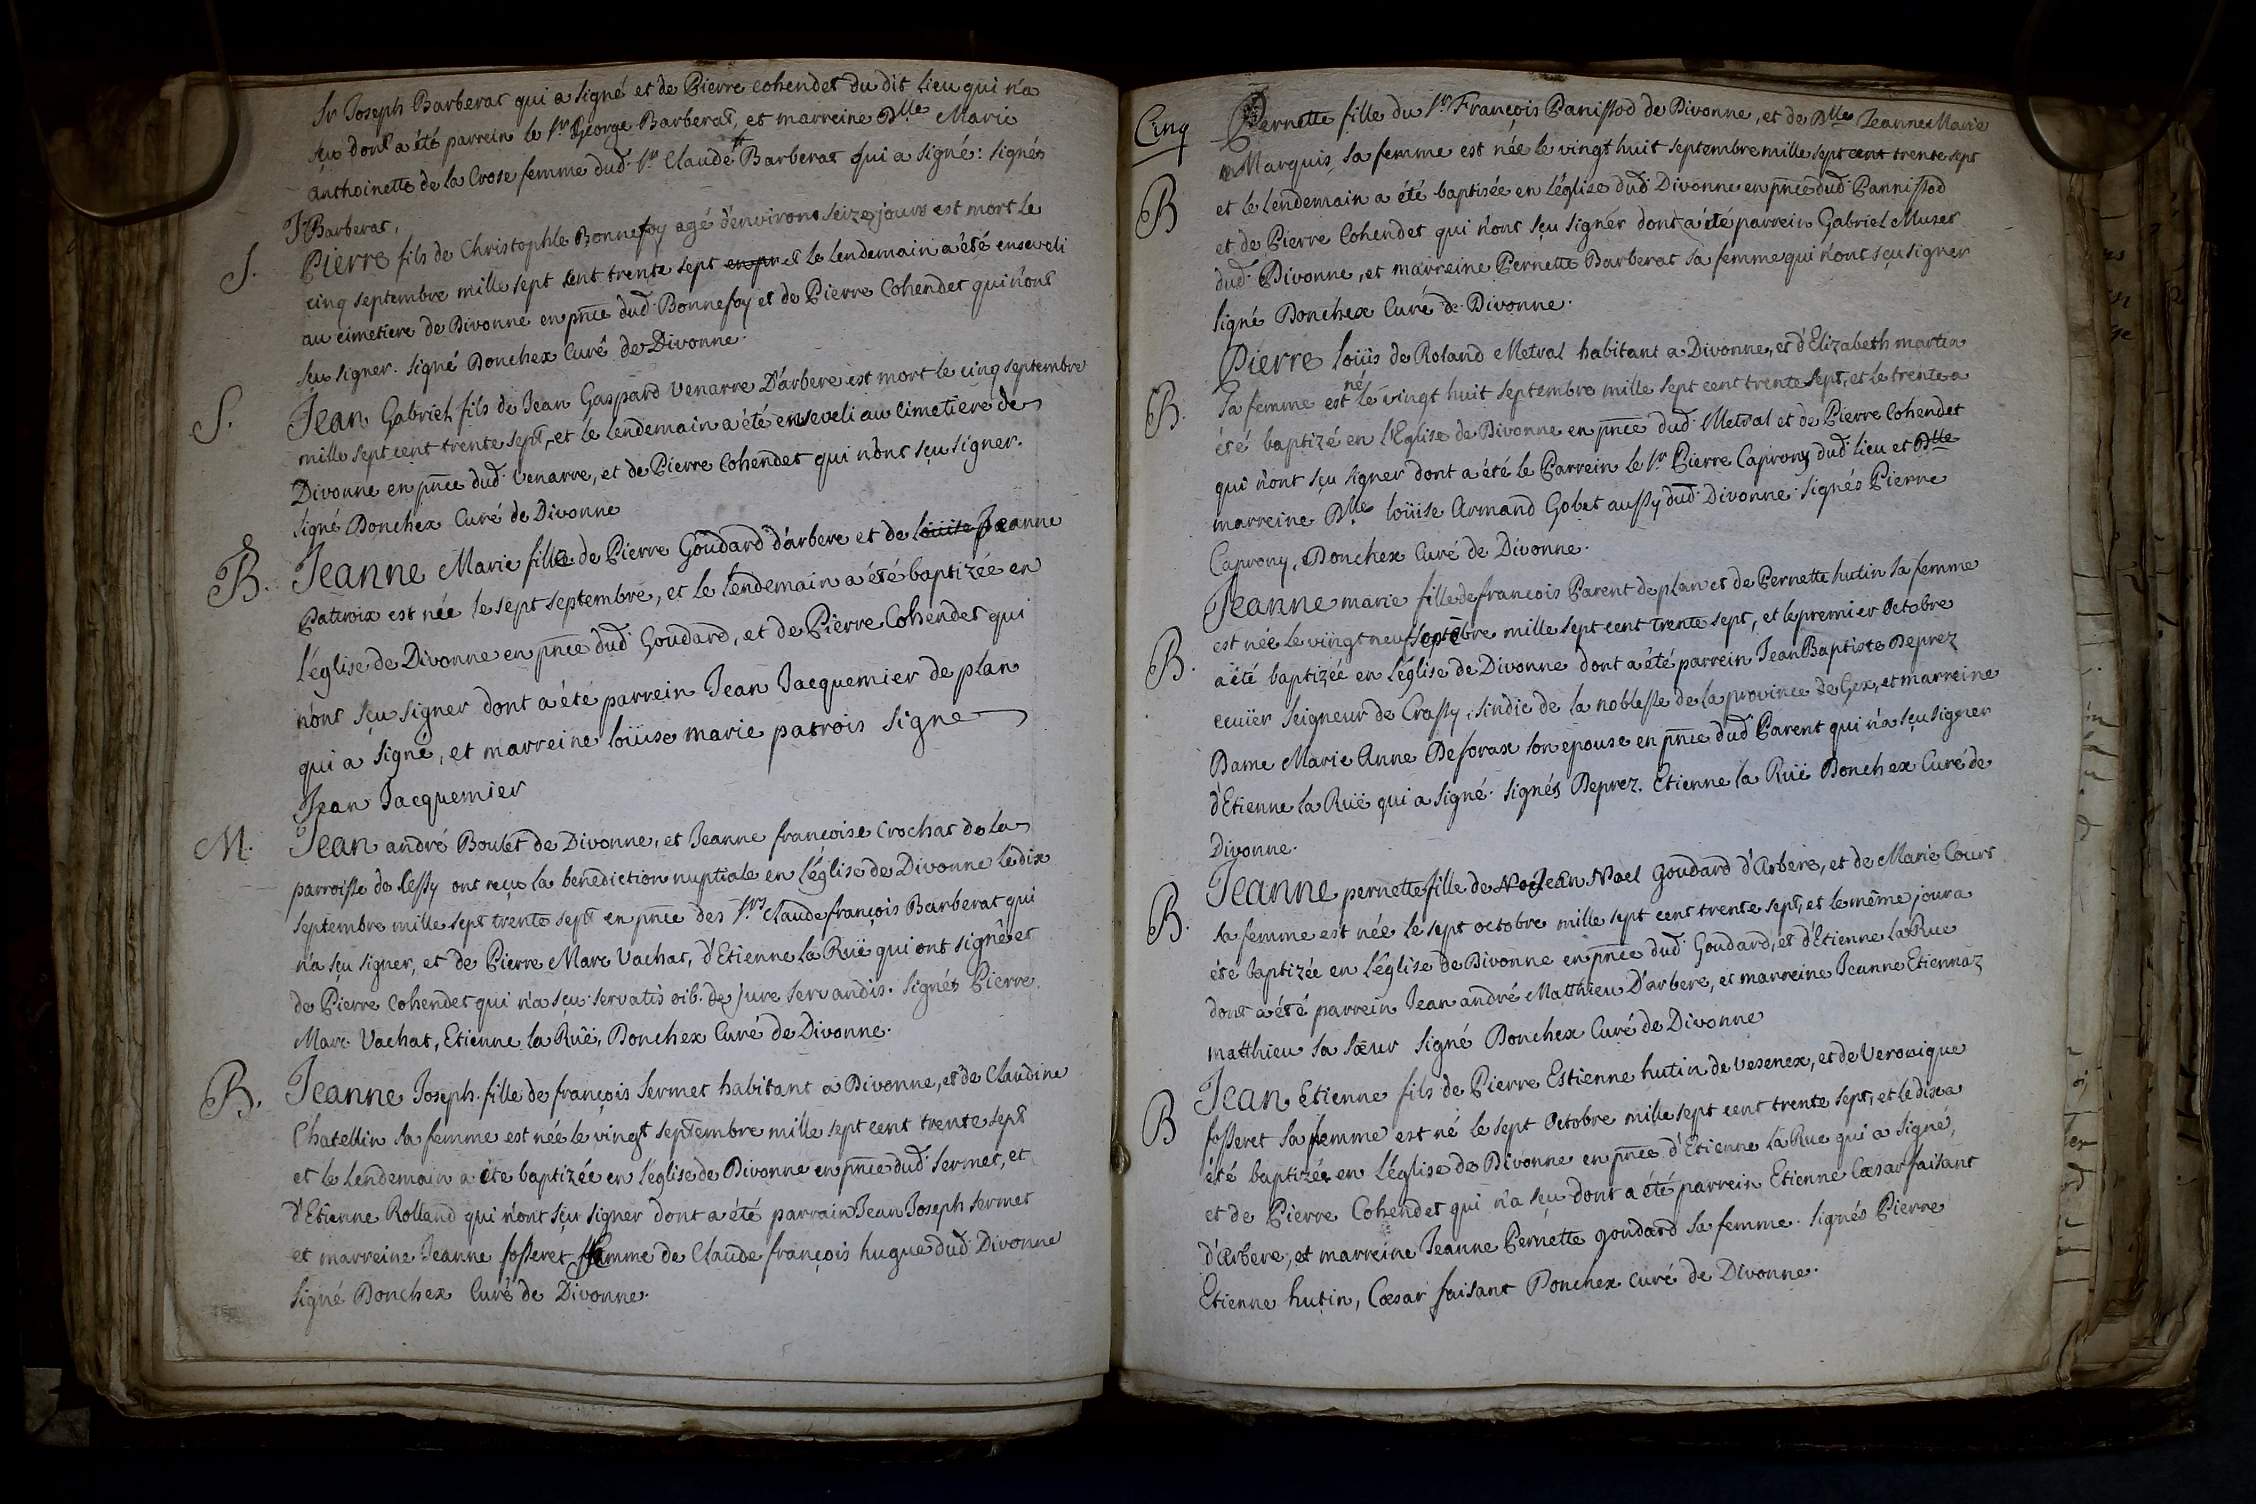 Sr Joseph Barberat qui a signé et de Pierre cohendet du dit Lieu qui n'a
sçu dont a été parrein le Sr George Barberat, et marreine Dlle Marie
Anthoinette de la Crose femme dud. Sr Claude Barberat qui a signé: signés
J Barberat,
S. Pierre fils de Christophle Bonnefoy agé d'environ seize jours est mort le
cinq septembre mille sept cent trente sept et le lendemain a été enseveli
au cimetiere de Divonne en pnce dud. Bonnefoy et de Pierre Cohendet qui n'ont
sçu signer. signé Donchex Curé de Divonne.
S. Jean Gabrieh fils de Jean Gaspard Venarre D'arbere est mort le cinq septembre
mille sept cent trente sept, et le lendemain a été enseveli au cimetiere de
Divonne en pnce dud. Venarre, et de Pierre Cohendet qui n'ont sçu signer.
signé Donchex Curé de Divonne
B. Jeanne Marie fille de Pierre Goudard d'arbere et de loüise Jeanne
Patroix est née le sept septembre, et le lendemain a été baptizée en
l'église de Divonne en pnce dud. Goudard, et de Pierre Cohendet qui
n'ont sçu signer dont a été parrein Jean Jacquemier de plan
qui a signé, et marreine loüise marie patrois signe
Jean Jacquemier
M. Jean andré Boulet de Divonne, et Jeanne françoise Crochat de la
parroisse de Cessy ont reçu la benediction nuptiale en l'église de Divonne le dix
septembre mille sept trente sept en pnce des Srs Claude françois Barberat qui
n'a sçu signer, et de Pierre Marc Vachat, d'Etienne la Ruë qui ont signé et
de Pierre Cohendet qui n'a sçu servatis oib. de jure servandis. Signés Pierre
Marc Vachat, Etienne la Ruë, Donchex Curé de Divonne.
B. Jeanne Joseph fille de françois Sermet habitant a Divonne, et de Claudine
Chatellin sa femme est née le vingt septembre mille sept cent trente sept
et le lendemain a été baptizée en l'église de Divonne en pnce dud. Sermet, et
d'Etienne Rolland qui n'ont sçu signer dont a été parrain Jean Joseph Sermet
et marreine Jeanne fosseret femme de Claude françois hugue dud. Divonne
signé Donchex Curé de Divonne.
Cinq
B Pernette fille du Sr François Panissod de Divonne, et de Dlle Jeanne Marie
Marquis, sa femme est née le vingt huit septembre mille sept cent trente sept
et le lendemain a été baptisée en l'église dud. Divonne en pnce dud. Pannissod
et de Pierre Cohendet qui n'ont sçu signer dont a été parrein Gabriel Muset
dud. Divonne, et marreine Pernette Barberat sa femme qui n'ont sçu signer
signé Donchex Curé de Divonne.
B. Pierre loüis de Roland Metral habitant a Divonne, et d'Elizabeth martin
Sa femme est né le vingt huit septembre mille sept cent trente sept, et le trente a
été baptizé en l'Eglise de Divonne en pnce dud. Metral et de Pierre Cohendet
qui n'ont sçu signer dont a été le Parrein le Sr Pierre Caprony dud. lieu et Dlle
marreine Dlle loüise Armand Gobet aussy dud. Divonne. signés Pierre
Caprony, Donchex Curé de Divonne.
B. Jeanne marie fille de francois Parent de plan et de Pernette hutin sa femme
est née le vingt neuf septẽbre mille sept cent trente sept, et le premier Octobre
a été baptizée en l'église de Divonne dont a été parrein Jean Baptiste Deprez
ecuïer seigneur de Crassy, sindic de la noblesse de la province de Gex, et marreine
Dame Marie Anne Deforax son epouse en pnce dud. Parent qui n'a sçu signer
d'Etienne la Ruë qui a signé. signés Deprez. Etienne la Ruë Donchex Curé de
Divonne.
B. Jeanne pernette fille de Noe Jean Noel Goudard d'arbere, et de Marie Court
sa femme est née le sept octobre mille sept cent trente sept, et le même jour a
été baptizée en l'église de Divonne en pnce dud. Goudard, et d'Etienne la Rue
dont a été parrein Jean andré Matthieu D'arbere, et marreine Jeanne Etiennaz
matthieu sa sœur signé Donchex Curé de Divonne
B Jean Etienne fils de Pierre Estienne hutin de vesenex, et de Veronique
fosseret sa femme est né le sept Octobre mille sept cent trente sept, et le dix a
été baptizée en l'église de Divonne en pnce d'Etienne la Rue qui a signé,
et de Pierre Cohendet qui n'a sçu dont a été parrein Etienne Cæsar faisant
d'arbere, et marreine Jeanne Pernette goudard sa femme. signés Pierre
Etienne hutin, Cæsar faisant Donchex curé de Divonne.